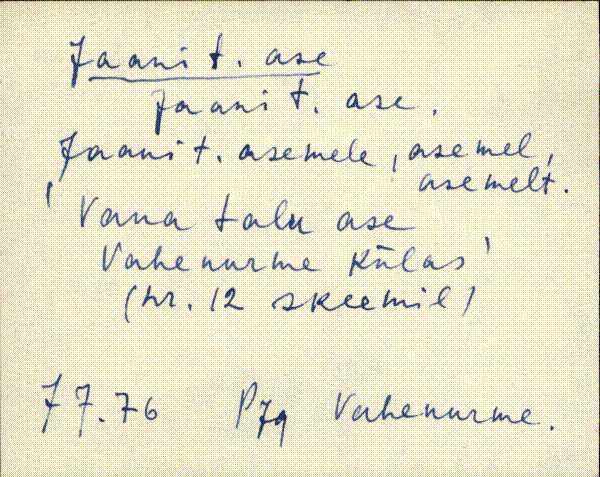 Jaani t. ase
Jaani t. ase.
Jaani t. asemele, asemel,
asemelt.
'Vana talu ase
Vahenurme külas'
(nr. 12 skeemil)
77.76 PJg Vahenurme.